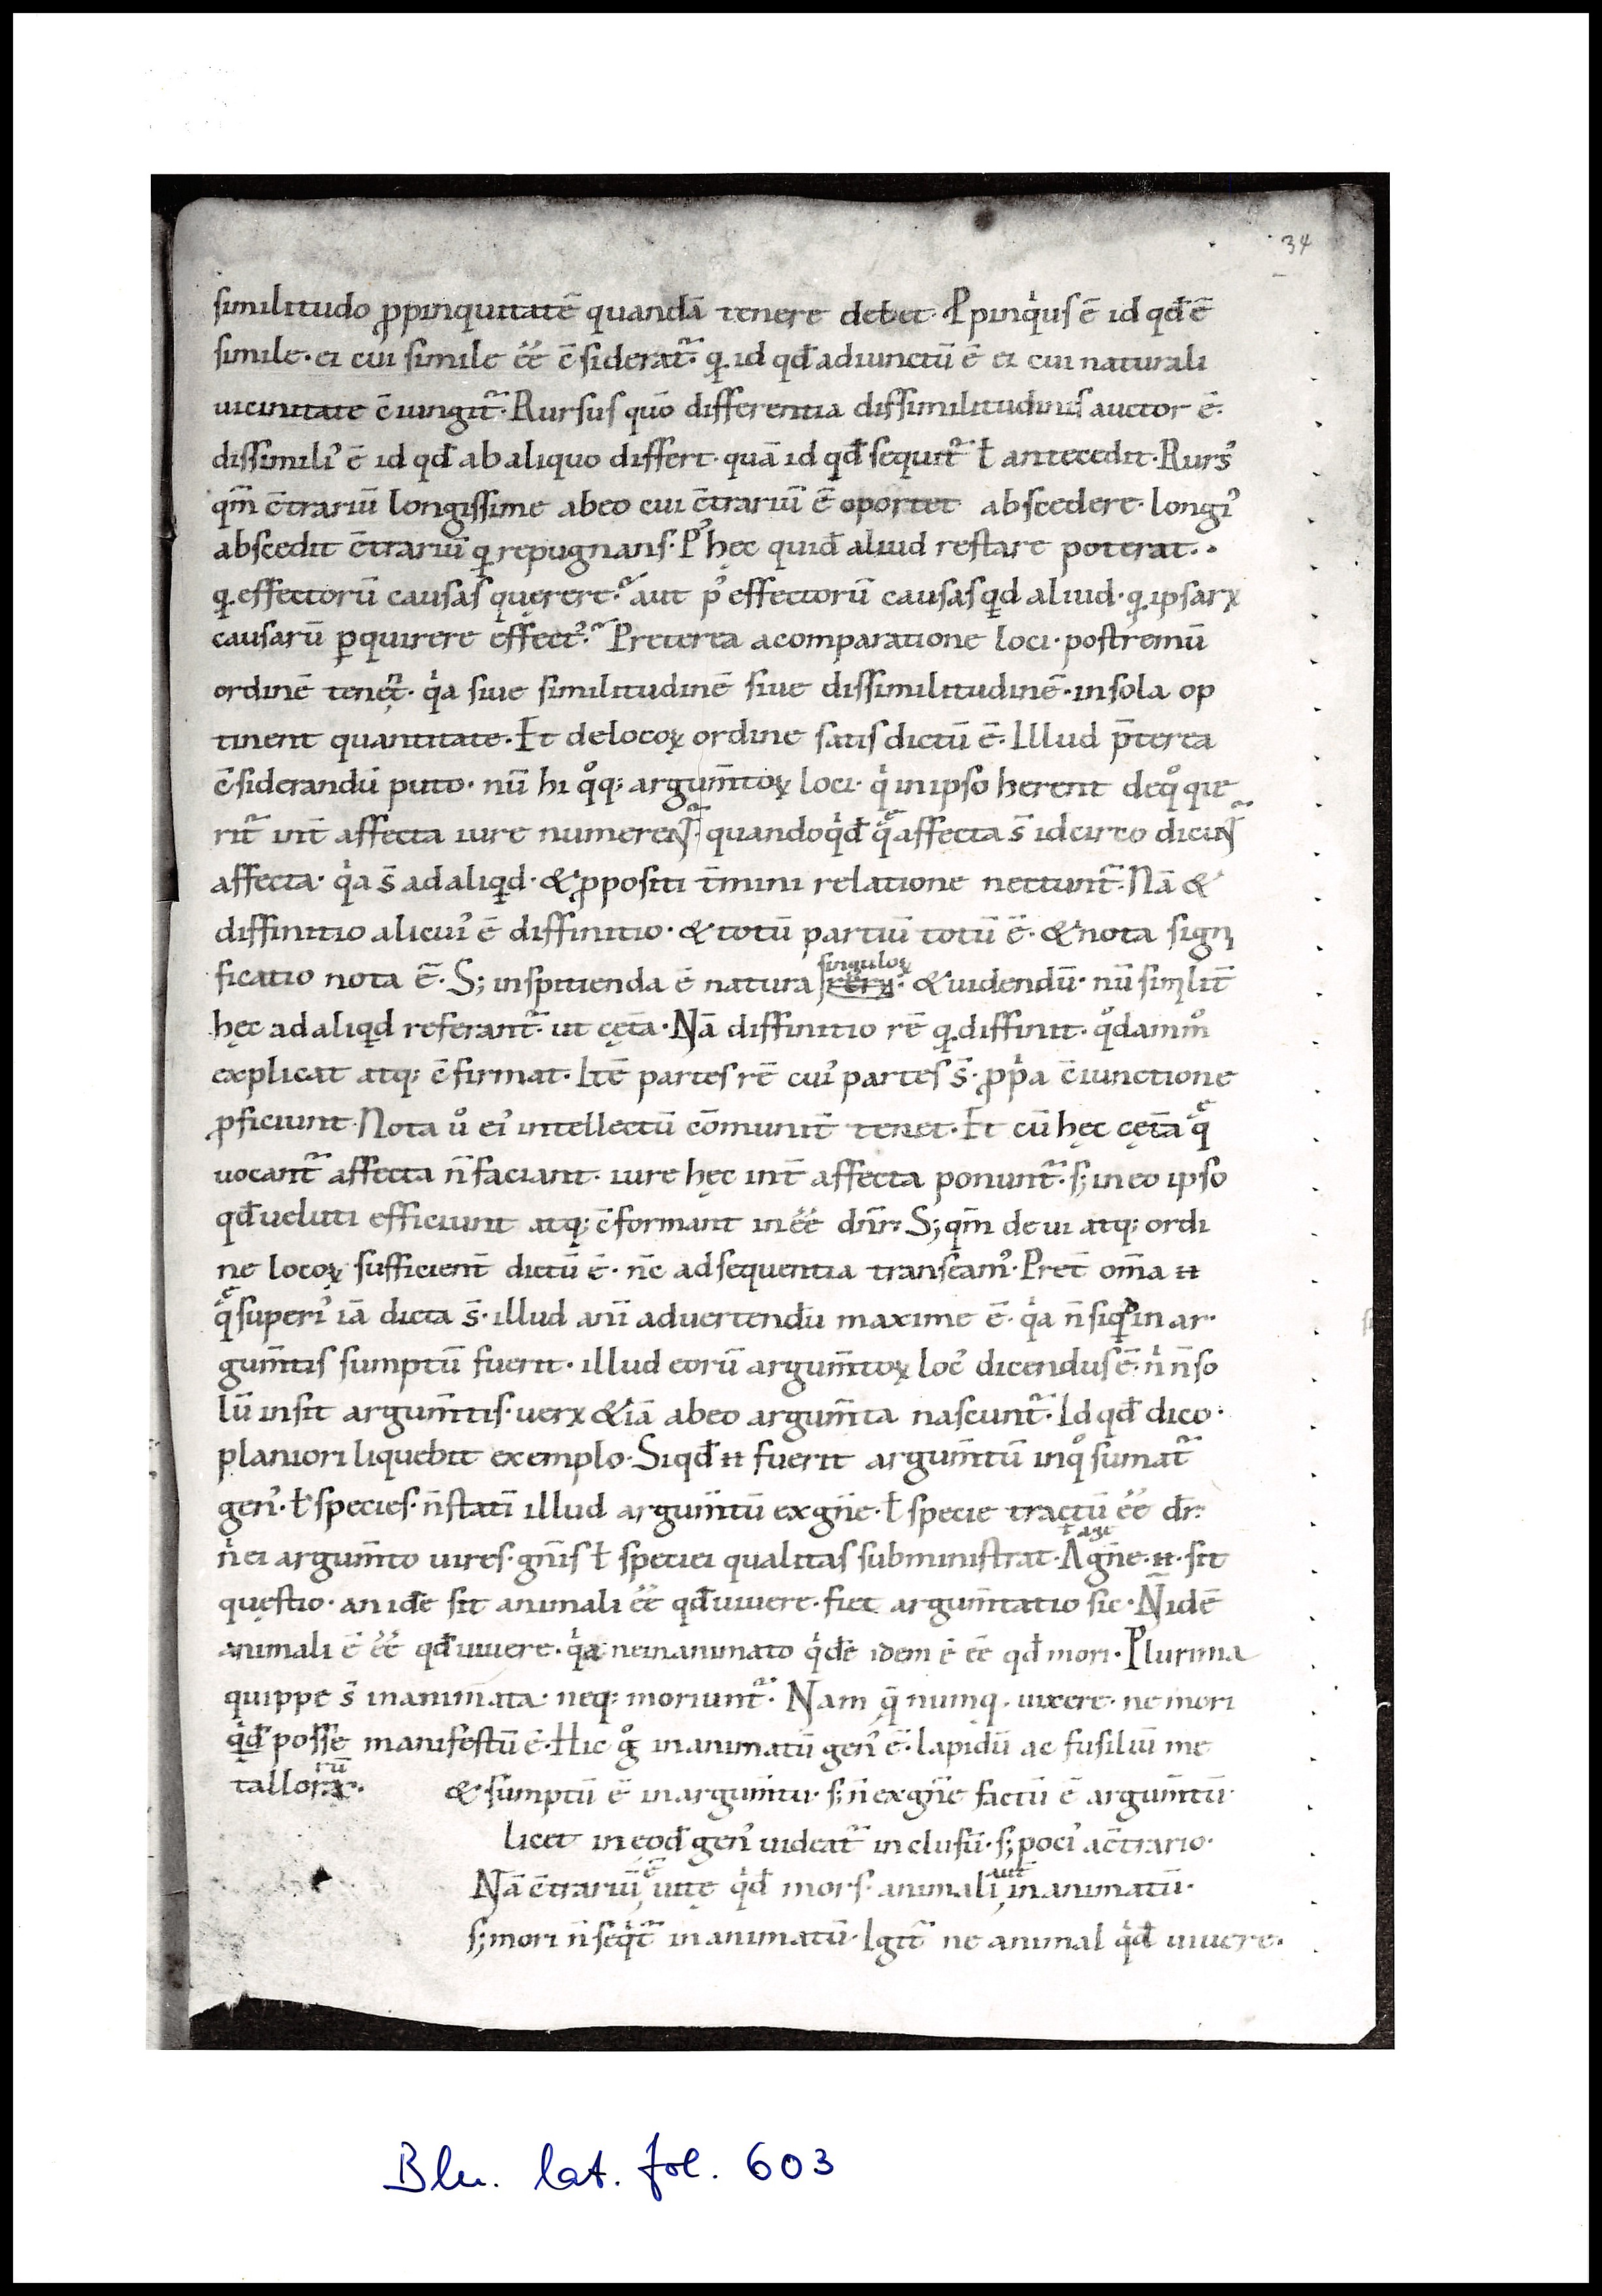 34
similitudo ꝓpinquitatē quandā tenere debet· Ppinqͥus ē id qđ ē
simile· ei cui simile ee͂ c̄siderat᷑· qͣ id qđ adiunctū ē ei cui naturali
uicinitate c̄iungit᷑· Rursus quō differentia dissimilitudinis auctor ē·
dissimiliꝰ ē id qđ ab aliquo differt· quā id qđ sequit᷑ ł antecedit· Rursꝰ
qm̄ c̄trariū longissime abeo cui c̄trariū ē oportet abscedere· longiꝰ
abscedit c̄trariū qͣ repugnans· Pꝰ hęc quid aliud restare poterat·
qͣ effectorū causas quęreret· aut pꝰ effectorū causas qͥd aliud· qͣ ipsarꝝ
causarū ꝑquirere effectꝰ· Preterea acomparatione loci· postremū
ordinē tenet᷑· qͥa siue similitudinē siue dissimilitudinē· insola op
tinent quantitate· Et delocoꝝ ordine satis dictū ē· Illud p̄terea
c̄siderandū puto· nū hi qͦq; argum̄toꝝ loci· qͥ inipso herent deqͦ que
rit᷑ int̄ affecta iure numerent᷑· quandoqͥđ quę affecta s̄ idcirco dicunt᷑
affecta· qͥa s̄ ad aliqͥd· & ꝓpositi t̄mini relatione nectunt᷑· Nā &
diffinitio alicuiꝰ ē diffinitio· & totū partiū totū ē· & nota signi
ficatio nota ē· S; inspitienda ē natura singuloꝝ rerꝝ· & uidendū· nū similit̄
hęc ad aliqͥd referant᷑· ut cęt̄a· Nā diffinitio rē qͣ diffinit· qͦdammͦ
explicat atq; c̄firmat· Itē partes rē cuiꝰ partes s̄· ꝓpͥa c̄iunctione
ꝓficiunt· Nota uͦ eiꝰ intellectū cōmunit̄ tenet· Et cū hęc cęt̄a quę
uocant᷑ affecta n̄ faciant· iure hęc int̄ affecta ponunt᷑· s; in eo ipso
qđ ueluti efficiunt atq; c̄formant in ee͂ dn̄r· S; qm̄ de ui atq; ordi
ne locoꝝ sufficient̄ dictū ē· nc̄ ad sequentia transeamꝰ· Pret̄ om̄a ħ
quę superiꝰ iā dicta s̄· illud ani͂ aduertendū maxime ē· qͥa n̄ siqͥd in ar·
gum̄tis sumptū fuerit· illud eorū argum̄toꝝ locꝰ dicendus ē· nͥ n̄ so
lū insit argum̄tis· uerx & iā abeo argum̄ta nascunt᷑· Id qđ dico·
planiori liquebit exemplo· Siqđ ħ fuerit argum̄tū inqͦ sumat᷑
genꝰ· ł species· n̄ stati͂ illud argum̄tū ex gn̄e· ł specie tractū ee͂ dr̄·
nͥ ei argum̄to uires· gn̄is ł speciei qualitas subministrat· A gn̄e· ħ· sit
questio· an idē sit animali ee͂ qđ uiuere· fiet argum̄tatio sic· N̄ idē
animali ē ee͂ qđ uiuere· qͥa nein animato qͥdē idem ē ee͂ qđ mori· Plurima
quippe s̄ inanimata· neq; moriunt᷑· Nam quę numqͣ uixere· ne mori
qͥđ posse manifestū ē· Hic gͦ inanimatū genꝰ ē· lapidū ac fusiliū me
tallorū· & sumptū ē in argum̄tū· s; n̄ ex gn̄e factū ē argum̄tū·
licet in eođ genꝰ uideat᷑ inclusū· s; pociꝰ ac̄trario·
Nā c̄trariū ē uitę qͥđ mors· animali aut̄ inanimatū·
s; mori n̄ seqͥt᷑ inanimatū· Igit᷑ ne animal qͥđ uiuere·
Bln. lat. fol. 603